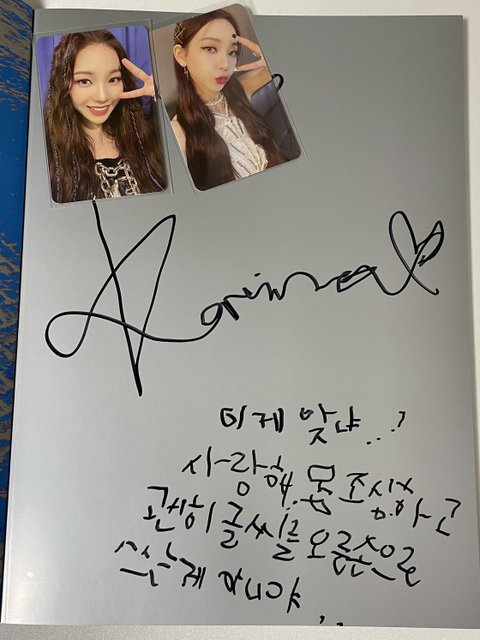 Karina
이게 맞냐..?
사랑해. 몸 조심하고
괜히 글씨를 오른손으로
쓰는게 아니야..